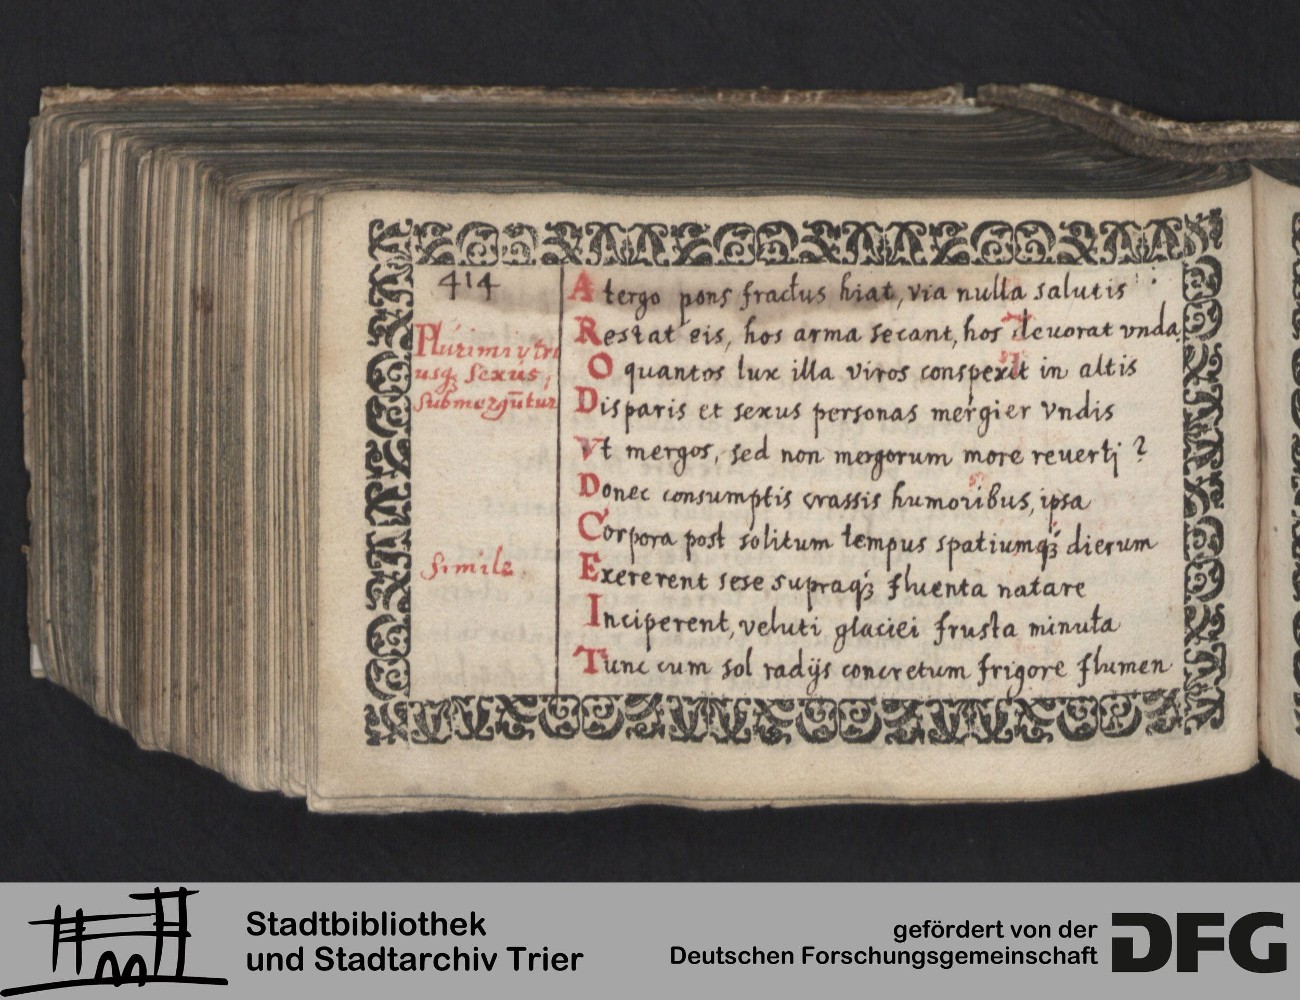 414
Plurimi vtri
usq; sexus,
submergūtur
Simile.
A tergo pons fractus hiat, via nulla salutis
Restat eis, hos arma secant, hos deuorat vnda.
O quantos lux illa viros conspexit in altis
Disparis et sexus personas mergier vndis
Vt mergos, sed non mergorum more reuerti ?
Donec consumptis crassis humoribus, ipsa
Corpora post solitum tempus spatiumq; dierum
Exererent sese supraq; fluenta natare
Inciperent, veluti glaciei frusta minuta
Tunc cum sol radijs concretum frigore flumen
Stadtbibliothek
und Stadtarchiv Trier
gefördert von der
Deutschen Forschungsgemeinschaft
DFG